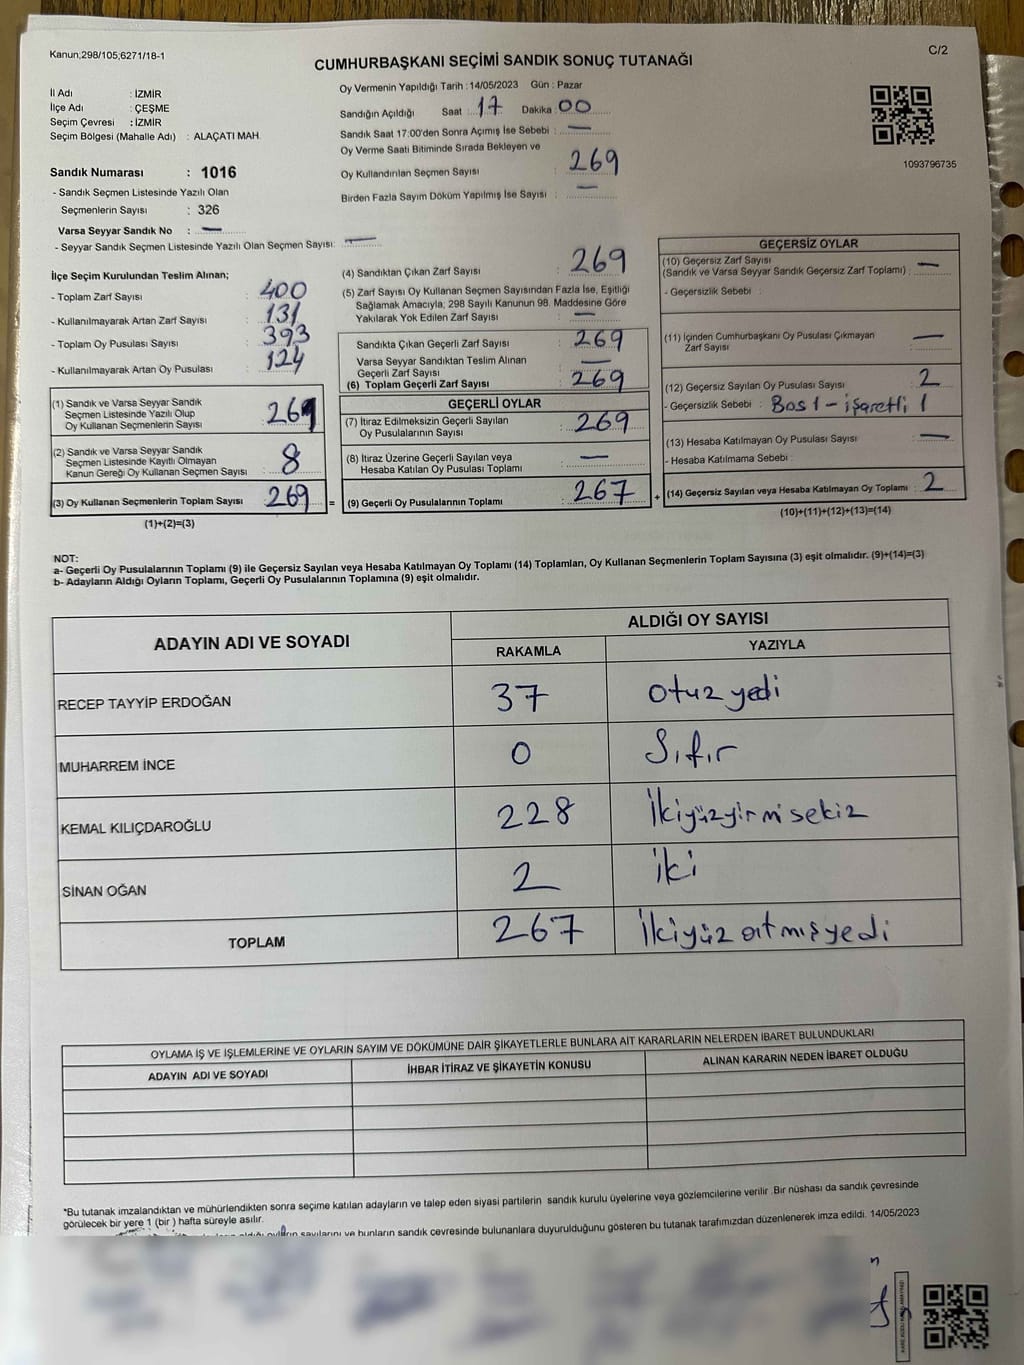 Kanun;298/105,6271/18-1
C/2
CUMHURBAŞKANI SEÇİMİ SANDIK SONUÇ TUTANAĞI
İl Adı : İZMİR
İlçe Adı : ÇEŞME
Seçim Çevresi : İZMİR
Seçim Bölgesi (Mahalle Adı) : ALAÇATI MAH.
Oy Vermenin Yapıldığı Tarih :14/05/2023 Gün : Pazar
Sandığın Açıldığı Saat : 17 Dakika : 00
Sandık Saat 17:00'den Sonra Açımış İse Sebebi : —
Oy Verme Saati Bitiminde Sırada Bekleyen ve
Oy Kullandırılan Seçmen Sayısı : 269
Birden Fazla Sayım Döküm Yapılmış İse Sayısı : —
1093796735
Sandık Numarası : 1016
- Sandık Seçmen Listesinde Yazılı Olan
Seçmenlerin Sayısı : 326
Varsa Seyyar Sandık No : —
- Seyyar Sandık Seçmen Listesinde Yazılı Olan Seçmen Sayısı: —
İlçe Seçim Kurulundan Teslim Alınan;
- Toplam Zarf Sayısı : 400
- Kullanılmayarak Artan Zarf Sayısı : 131
- Toplam Oy Pusulası Sayısı : 393
- Kullanılmayarak Artan Oy Pusulası : 124
(1) Sandık ve Varsa Seyyar Sandık
Seçmen Listesinde Yazılı Olup
Oy Kullanan Seçmenlerin Sayısı :
(2) Sandık ve Varsa Seyyar Sandık
Seçmen Listesinde Kayıtlı Olmayan
Kanun Gereği Oy Kullanan Seçmen Sayısı : 8
(3) Oy Kullanan Seçmenlerin Toplam Sayısı : 269 =
(1)+(2)=(3)
(4) Sandıktan Çıkan Zarf Sayısı : 269
(5) Zarf Sayısı Oy Kullanan Seçmen Sayısından Fazla İse, Eşitliği
Sağlamak Amacıyla; 298 Sayılı Kanunun 98. Maddesine Göre
Yakılarak Yok Edilen Zarf Sayısı : —
Sandıkta Çıkan Geçerli Zarf Sayısı : 269
Varsa Seyyar Sandıktan Teslim Alınan
Geçerli Zarf Sayısı : —
(6) Toplam Geçerli Zarf Sayısı : 269
GEÇERLİ OYLAR
(7) İtiraz Edilmeksizin Geçerli Sayılan
Oy Pusulalarının Sayısı : 269
(8) İtiraz Üzerine Geçerli Sayılan veya
Hesaba Katılan Oy Pusulası Toplamı : —
(9) Geçerli Oy Pusulalarının Toplamı : 267 +
GEÇERSİZ OYLAR
(10) Geçersiz Zarf Sayısı
(Sandık ve Varsa Seyyar Sandık Geçersiz Zarf Toplamı) : —
- Geçersizlik Sebebi :
(11) İçinden Cumhurbaşkanı Oy Pusulası Çıkmayan
Zarf Sayısı : —
(12) Geçersiz Sayılan Oy Pusulası Sayısı : 2
- Geçersizlik Sebebi : Bos 1 - işaretli 1
(13) Hesaba Katılmayan Oy Pusulası Sayısı : —
- Hesaba Katılmama Sebebi :
(14) Geçersiz Sayılan veya Hesaba Katılmayan Oy Toplamı : 2
(10)+(11)+(12)+(13)=(14)
NOT:
a- Geçerli Oy Pusulalarının Toplamı (9) ile Geçersiz Sayılan veya Hesaba Katılmayan Oy Toplamı (14) Toplamları, Oy Kullanan Seçmenlerin Toplam Sayısına (3) eşit olmalıdır. (9)+(14)=(3)
b- Adayların Aldığı Oyların Toplamı, Geçerli Oy Pusulalarının Toplamına (9) eşit olmalıdır.
ADAYIN ADI VE SOYADI
ALDIĞI OY SAYISI
RAKAMLA YAZIYLA
RECEP TAYYİP ERDOĞAN 37 otuz yedi
MUHARREM İNCE 0 Sıfır
KEMAL KILIÇDAROĞLU 228 İkiyüzyirmisekiz
SİNAN OĞAN 2 iki
TOPLAM 267 İkiyüz atmışyedi
OYLAMA İŞ VE İŞLEMLERİNE VE OYLARIN SAYIM VE DÖKÜMÜNE DAİR ŞİKAYETLERLE BUNLARA AİT KARARLARIN NELERDEN İBARET BULUNDUKLARI
ADAYIN ADI VE SOYADI İHBAR İTİRAZ VE ŞİKAYETİN KONUSU ALINAN KARARIN NEDEN İBARET OLDUĞU
*Bu tutanak imzalandıktan ve mühürlendikten sonra seçime katılan adayların ve talep eden siyasi partilerin sandık kurulu üyelerine veya gözlemcilerine verilir .Bir nüshası da sandık çevresinde
görülecek bir yere 1 (bir ) hafta süreyle asılır.
sayılarını ve bunların sandık çevresinde bulunanlara duyurulduğunu gösteren bu tutanak tarafımızdan düzenlenerek imza edildi. 14/05/2023